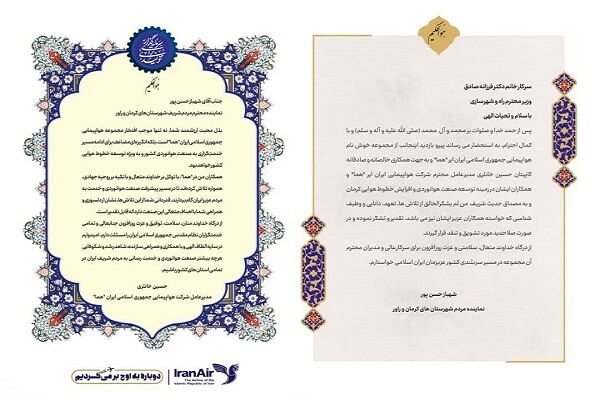 هو الحکیم
سرکار خانم دکتر فرزانه صادق
وزیر محترم راه و شهرسازی
با سلام و تحیات الهی
پس از حمد خدا و صلوات بر محمد و آل محمد (صلی الله علیه و آله و سلم) و با
کمال احترام، به استحضار می رساند پیرو بازدید اینجانب از مجموعه خوش نام
هواپیمایی جمهوری اسلامی ایران ایر "هما" و به جهت همکاری خالصانه و صادقانه
کاپیتان حسین خانلری مدیرعامل محترم شرکت هواپیمایی ایران ایر "هما" و
همکاران ایشان در زمینه توسعه صنعت هوانوردی و افزایش خطوط هوایی کرمان
و به مصداق حدیث شریف من لم یشکر الخالق از تلاش ها، تعهد، دانایی و وظیفه
شناسی که خواسته همکاران عزیز ایشان نیز می باشد، تقدیر و تشکر نموده و در
صورت صلاحدید مورد تشویق و تفقد قرار گیرند.
از درگاه خداوند متعال، سلامتی و عزت روزافزون برای سرکارعالی و مدیران محترم
آن مجموعه در مسیر سربلندی کشور عزیزمان ایران اسلامی خواستارم.
شهباز حسن پور
نماینده مردم شهرستان های کرمان و راور
هو الحکیم
جناب آقای شهباز حسن پور
نماینده محترم مردم شریف شهرستان های کرمان و راور
بذل محبت ارزشمند شما، نه تنها موجب افتخار مجموعه هواپیمایی
جمهوری اسلامی ایران "هما" است، بلکه انگیزه ای مضاعف برای ادامه مسیر
خدمت گزاری به صنعت هوانوردی کشور و به ویژه توسعه خطوط هوایی
کشور خواهد بود.
همکاران من در "هما"، با توکل بر خداوند متعال و با تکیه بر روحیه جهادی،
همواره تلاش کرده اند، تا در مسیر پیشرفت صنعت هوانوردی و خدمت به
مردم عزیز ایران گام بردارند. قدردانی شما از این تلاش ها، نشان از دلسوزی و
همراهی شما با اهداف متعالی این صنعت دارد که قابل تقدیر است.
از درگاه خداوند منان، سلامت، توفیق و عزت روزافزون جنابعالی و تمامی
خدمتگزاران نظام مقدس جمهوری اسلامی ایران را مسئلت دارم. امیدوارم
در سایه الطاف الهی و با همکاری و همراهی سازنده، شاهد رشد و شکوفایی
هرچه بیشتر صنعت هوانوردی و خدمت رسانی به مردم شریف ایران در
تمامی استان های کشور باشیم.
حسین خانلری
مدیرعامل شرکت هواپیمایی جمهوری اسلامی ایران "هما"
دوباره به اوج بر می گردیم
IranAir
The Airline of the
Islamic Republic of Iran